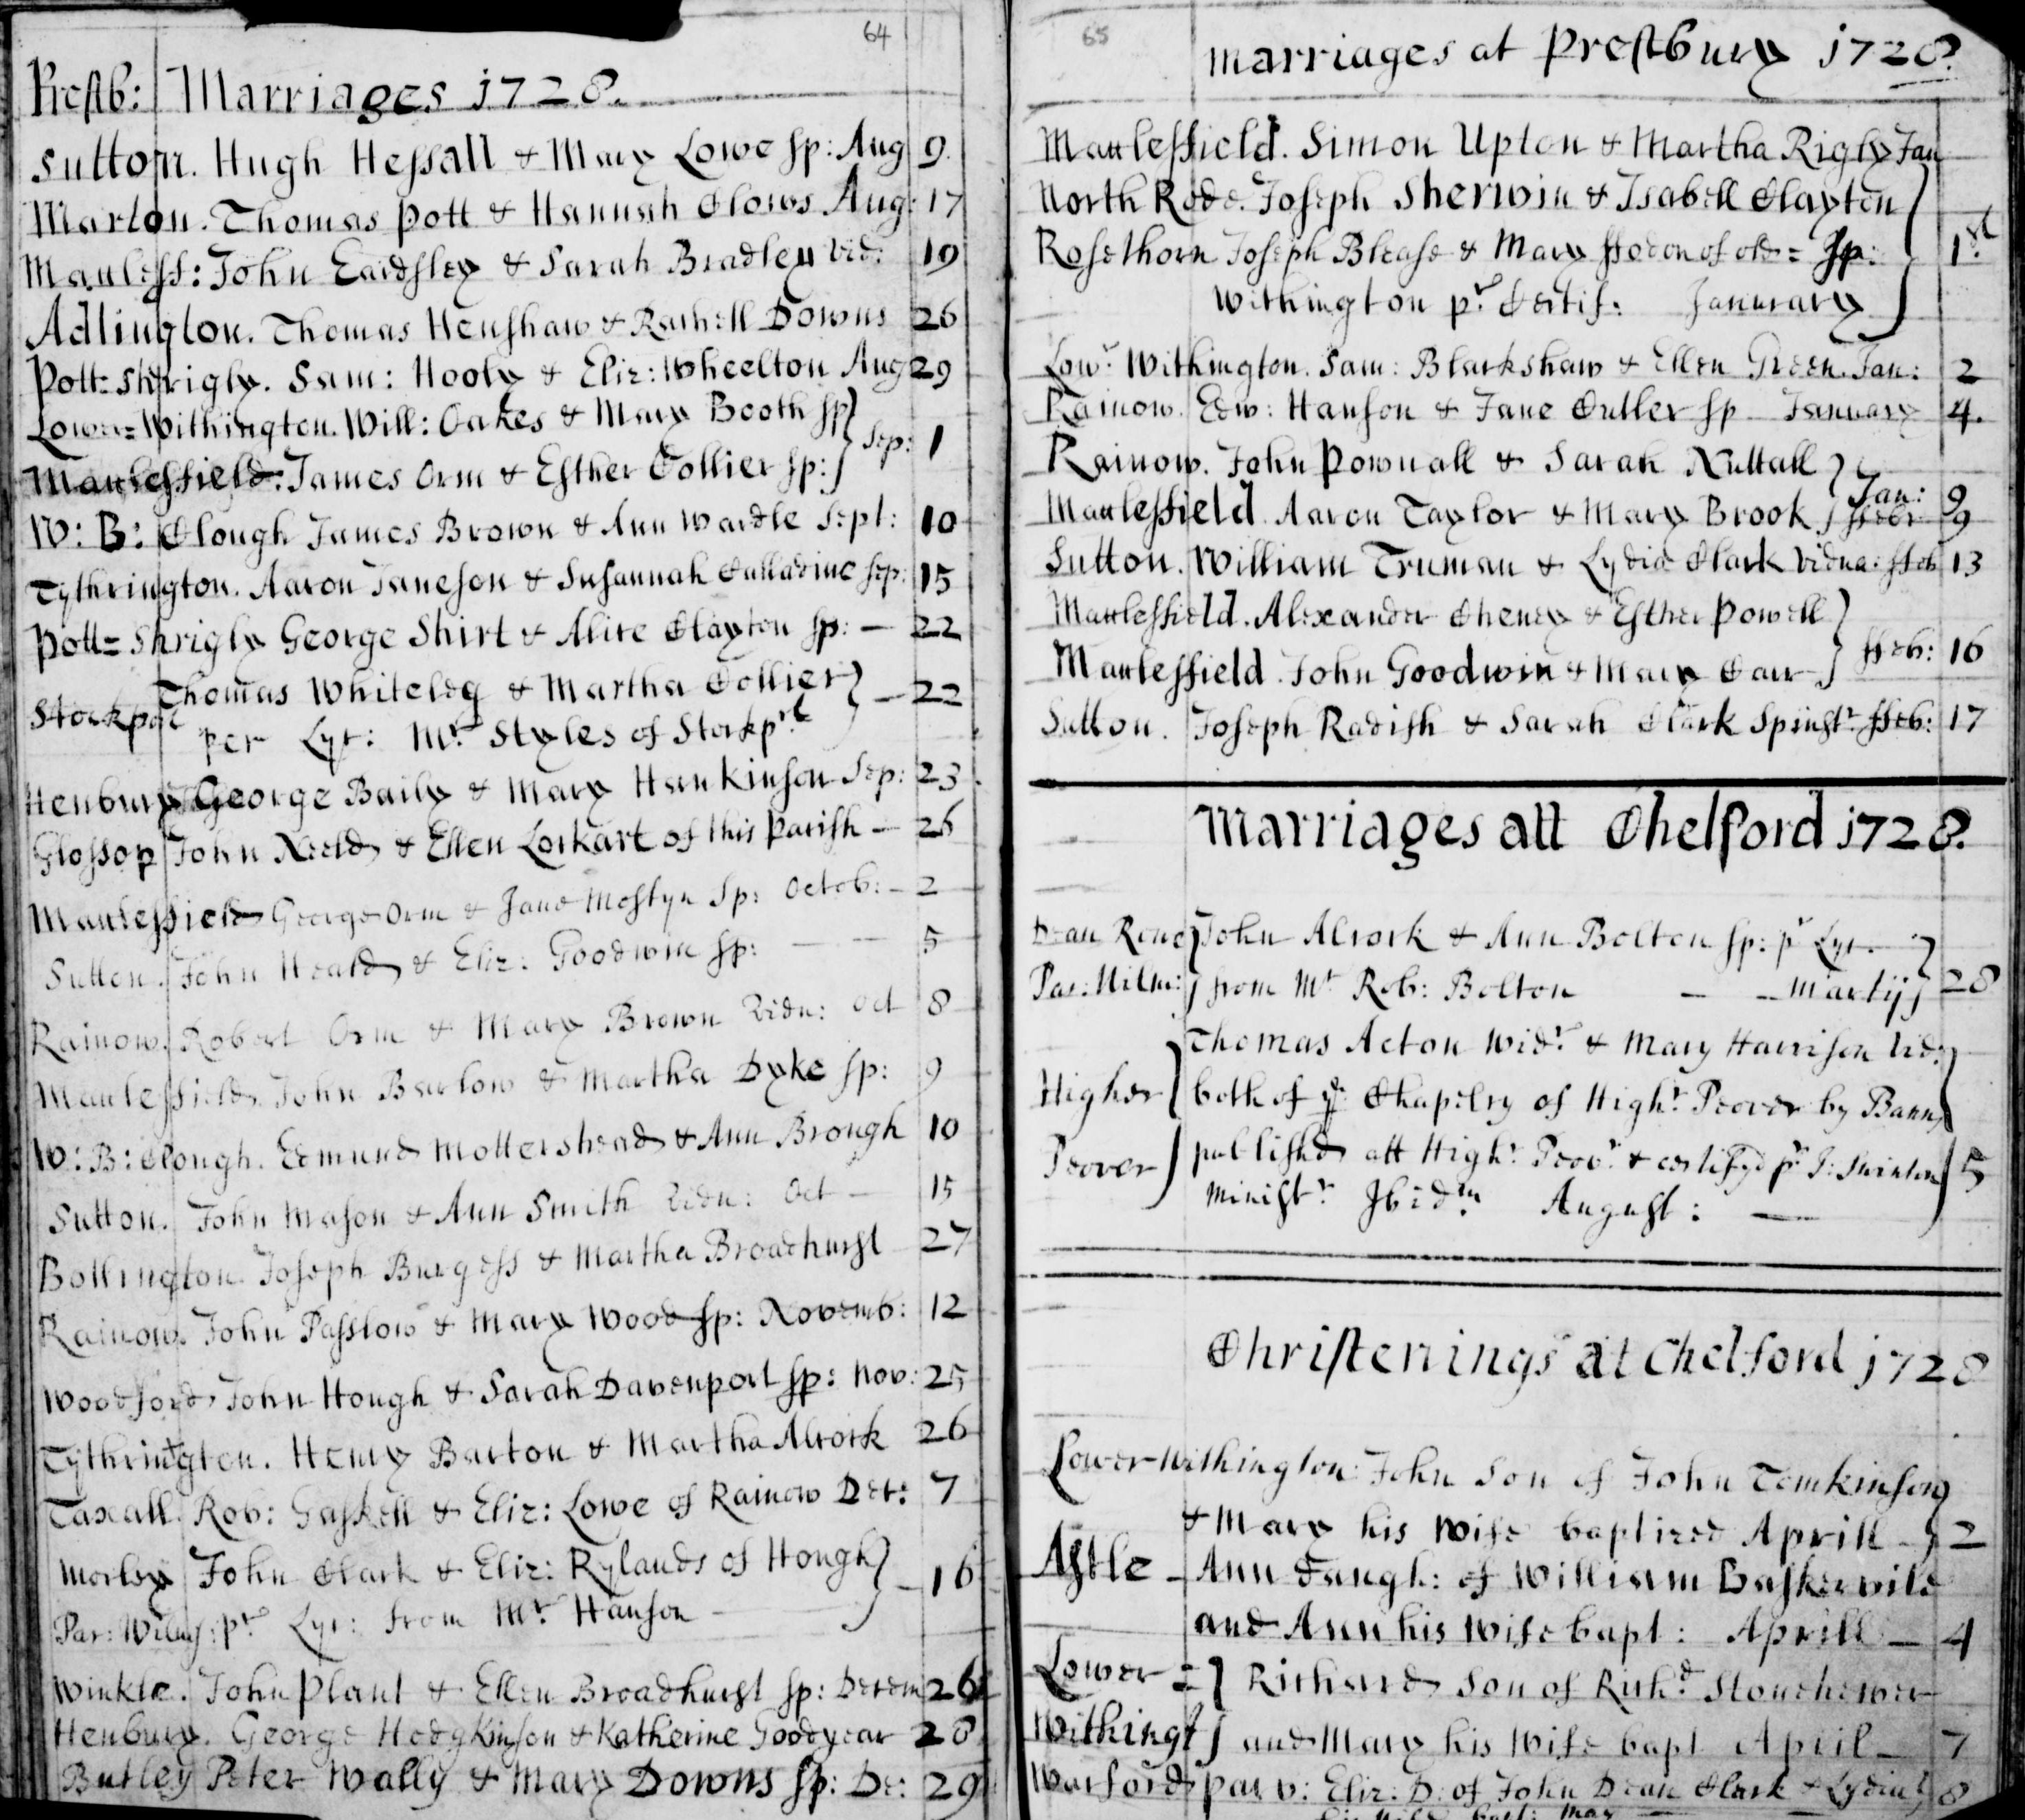 64
Prestb: Marriages 1728.
Sutton. Hugh Hessall & Mary Lowe sp: Aug 9.
Marton. Thomas Pott & Hannah Clows Aug: 17
Maclesf: John Eardsley & Sarah Bradley vid: 19
Adlington. Thomas Henshaw & Rachell Downs 26
Pott=Shrigly. Sam: Hooly & Eliz: Wheelton Aug 29
Lower=Withington. Will: Oakes & Mary Booth sp
Macclesfield. James Orm & Esther Collier sp: Sep: 1
W: B: Clough James Brown & Ann Wardle Sept: 10
Tythrington. Aaron Janeson & Susannah Calladine sep: 15
Pott=Shrigly George Shirt & Alice Clayton sp: — 22
Stockport Thomas Whiteleg & Martha Collier — 22
per Lyc: Mr. Styles of Stockprt
Henbury George Baily & Mary Hankinson Sep: 23
Glossop John Neeld & Ellen Lockart of this Parish — 26
Macclesfield George Orm & Jane Mostyn Sp: Octob: — 2
Sutton. John Heald & Eliz: Goodwin sp: — — 5
Rainow. Robert Orm & Mary Brown Vidu: Oct 8
Macclesfield. John Barlow & Martha Dyke sp: 9
W: B: Clough. Edmund Mottershead & Ann Brough 10
Sutton. John Mason & Ann Smith Vidu: Oct — 15
Bollington. Joseph Burgess & Martha Broadhurst 27
Rainow. John Passlow & Mary Wood sp: Novemb: 12
Woodford. John Hough & Sarah Davenport sp: Nov: 25
Tythrington. Henry Barton & Martha Alcock 26
Taxall. Rob: Gaskell & Eliz: Lowe of Rainow Dec: 7
Morley John Clark & Eliz: Rylands of Hough — 16
Par: Wilms: pr Lyc: from Mr. Hanson
Winkle. John Plant & Ellen Broadhurst sp: Decem 26
Henbury. George Hodgkinson & Katherine Goodyear 28
Butley Peter Wally & Mary Downs sp: De: 29
65
Marriages at Prestbury 1728.
Macclesfield. Simon Upton & Martha Rigby Jan
North Rode. Joseph Sherwin & Isabell Clayton
Rosethorn Joseph Blease & Mary of old= Sp: 1st
Withington pr Certif: Janurary
Lowr Withington. Sam: Blackshaw & Ellen Green. Jan: 2
Rainow. Edw: Hanson & Jane Cutler sp January 4.
Rainow. John Pownall & Sarah Nuttall Jan: 9
Macclesfield. Aaron Taylor & Mary Brook ffebr 9
Sutton. William Truman & Lydia Clark Vidua: ffeb 13
Macclesfield. Alexander Cheney & Esther Powell
Macclesfield. John Goodwin & Mary Carr ffeb: 16
Sutton. Joseph Radish & Sarah Clark Spinstr ffeb: 17
Marriages att Chelford 1728.
Dean Rowe John Alcock & Ann Bolton sp: pr Lyc.
Par: Wilm: from Mr Rob: Bolton — — Martij 28
Thomas Acton Widr & Mary Harrison Vid:
Higher both of ye Chapelry of Highr Peover by Banns
Peover published att Highr Peovr & certifyd pr J: Swinton 5
Ministr Ibidm August: —
Christenings at Chelford 1728
Lower Withington: John Son of John Tomkinson
& Mary his Wife baptized Aprill — 2
Astle — Ann Daugh: of William Baskervile
and Ann his Wife bapt: Aprill — 4
Lower = Richard Son of Richd Stonehewer
Withingt and Mary his Wife bapt April — 7
Warford parv: Eliz: D: of John Dean Clark & Lydia 8
his Wife bapt: May